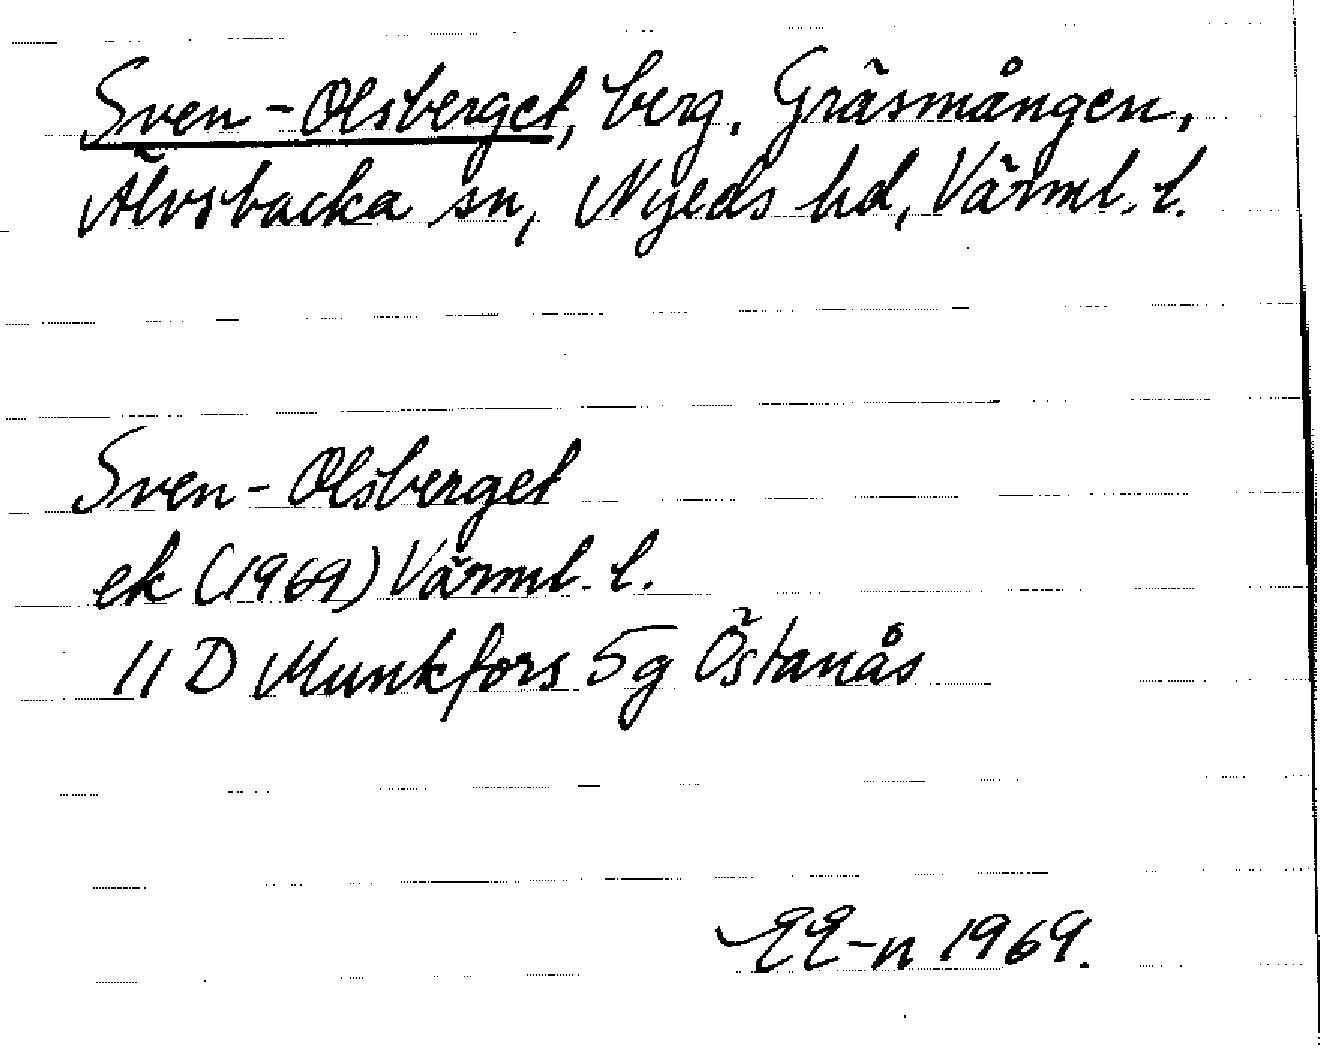 Sven-Olsberget, berg, Gräsmången,
Älvsbacka sn, Nyeds hd, Värml. l.
Sven-Olsberget
ek (1969) Värml. l.
11 D Munkfors 5g Östanås
EE-n 1969.